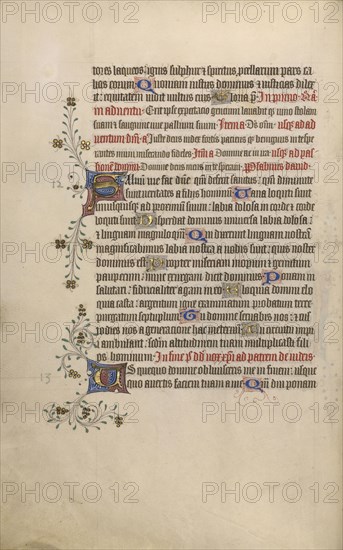 tores laqueos ignis sulphur et spiritus procellarum pars ca
licis eorum Quoniam iustus dominus et iusticias dilex
it equitatem vidit vultus eius Gloria p In primo
in adventu
suam et sanguine uve pallium suum Item a Ds
ventum dni a Iuste deus iudex fortis paciens et benignus in vespe
rantes nunc miserando fideles Item a Domine ne in ira usq ad pas
sione Domine deus meus Psalmus david
Saluum me fac dne qm defecit sanctus qm diminute
sunt veritates a filiis hominum Vana locuti sunt
unusquisq ad proximum suum labia dolosa in corde et corde
locuti sunt Disperdat dominus universa labia dolosa
et linguam magniloquam Qui dixerunt linguam nostram
magnificabimus labia nostra a nobis sunt quis noster
dominus est Propter miseriam inopum et gemitum
pauperum nunc exurgam dicit dominus Ponam in
salutari fiducialiter agam in eo Eloquia domini elo
quia casta argentum igne examinatum probatum terre
purgatum septuplum Tu domine servabis nos et cus
todies nos a generatione hac in eternum In circuitu impii
ambulant secundum altitudinem tuam multiplicasti fili
os hominum In fine ps dd vox xpi ad patrem de iudeis
Usquequo domine oblivisceris me in finem usque
quo avertis faciem tuam a me Quam diu ponam
12
13